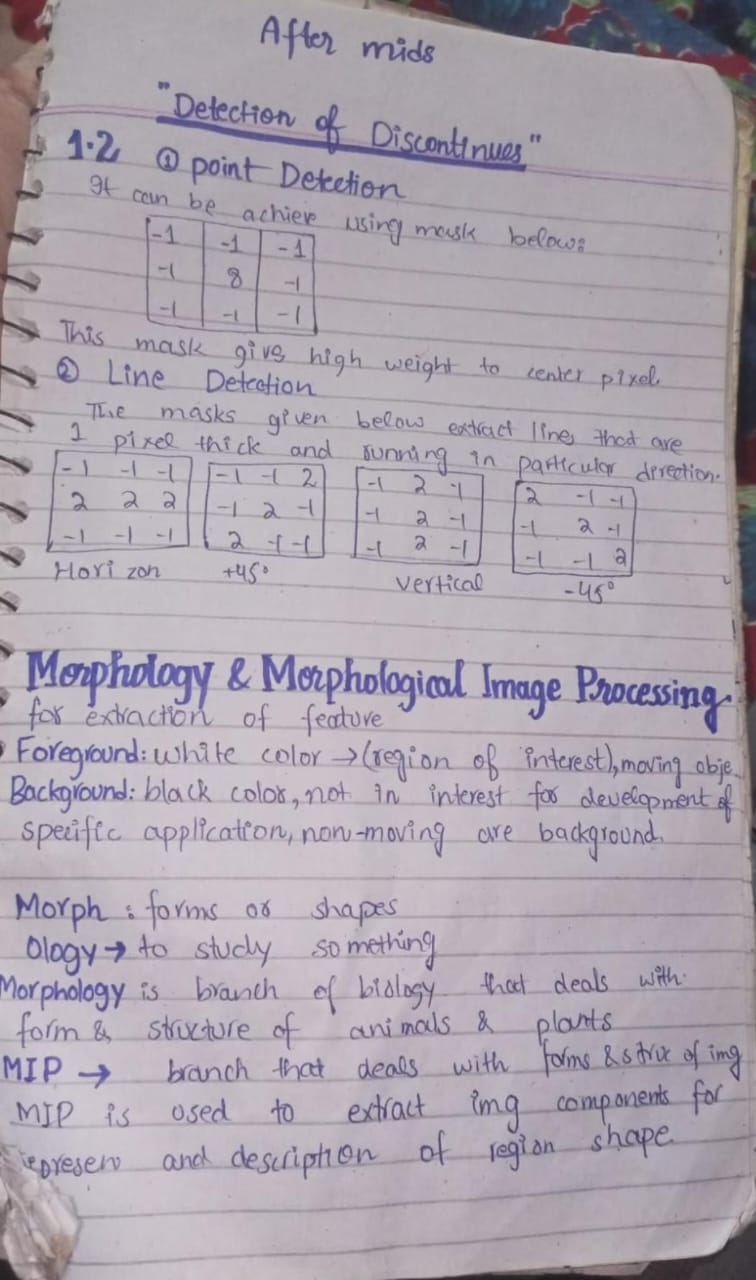 After mids
"Detection of Discontinues"
1.2 ① point Detection
It can be achieve using mask below:
-1 -1 -1
-1 8 -1
-1 -1 -1
This mask give high weight to center pixel
② Line Detection
The masks given below extract lines that are
1 pixel thick and running in particular direction.
-1 -1 -1 -1 -1 2 -1 2 -1 2 -1 -1
2 2 2 -1 2 -1 -1 2 -1 -1 2 -1
-1 -1 -1 2 -1 -1 -1 2 -1 -1 -1 2
Horizon +45° vertical -45°
Morphology & Morphological Image Processing
for extraction of feature
Foreground: white color → (region of interest), moving obje
Background: black color, not in interest for development of
specific application, non-moving are background.
Morph : forms or shapes
Ology → to study something
Morphology is branch of biology that deals with
form & structure of animals & plants
MIP → branch that deals with forms & strux of img
MIP is used to extract img components for
and description of region shape